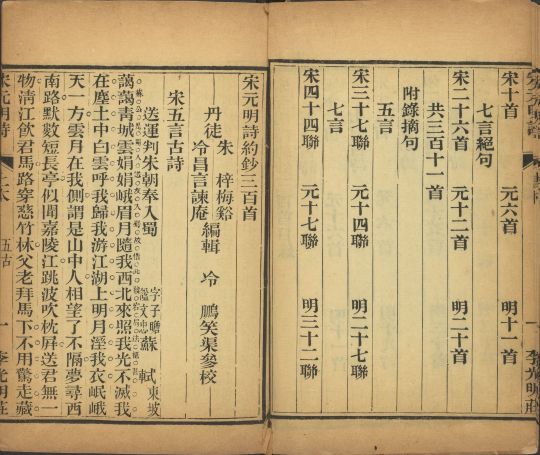 宋十首　元六首　明十一首
七言絕句
宋二十六首　元十二首　明二十首
共三百十一首
附錄摘句
五言
宋三十七聯　元十四聯　明二十七聯
七言
宋四十四聯　元十七聯　明三十二聯
一　李光明莊
宋元明詩約鈔三百首
丹徒　朱　梓梅谿　冷昌言諫庵　編輯　冷　鵬笑渠參校
宋五言古詩
送運判朱朝奉入蜀　字子瞻諡文忠　蘇　軾　東坡
藹藹青城雲娟娟峨眉月隨我西北來照我光不滅我
在塵土中白雲呼我歸我游江湖上明月溼我衣岷峨
天一方雲月在我側謂是山中人相望了不隔夢尋西
南路默數短長亭似聞嘉陵江跳波吹枕屏送君無一
物清江飲君馬路穿慈竹林父老拜馬下不用驚走藏
宋元明詩　五古　一　李光明莊